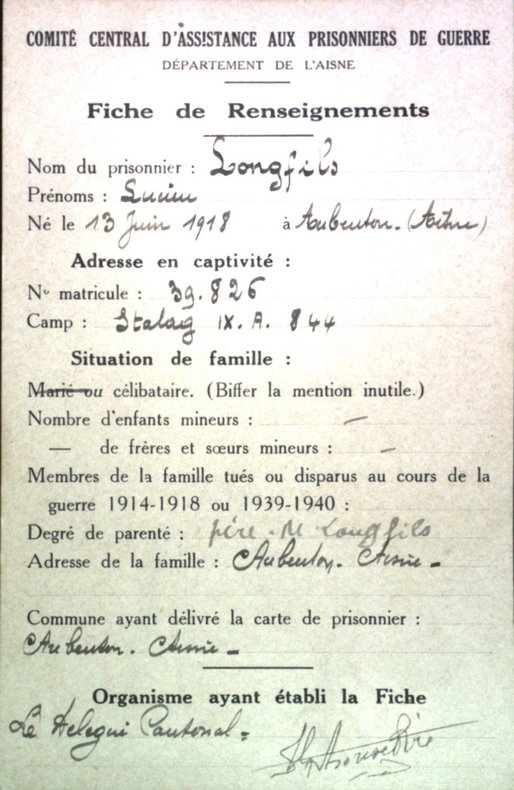 COMITÉ CENTRAL D'ASSISTANCE AUX PRISONNIERS DE GUERRE
DÉPARTEMENT DE L'AISNE
Fiche de Renseignements
Nom du prisonnier : Longfils
Prénoms : Lucien
Né le 13 Juin 1918 à Aubenton. (Aisne)
Adresse en captivité :
No matricule : 39.826
Camp : Stalag IX. A. 844
Situation de famille :
Marié ou célibataire. (Biffer la mention inutile.)
Nombre d'enfants mineurs : —
— de frères et sœurs mineurs : —
Membres de la famille tués ou disparus au cours de la
guerre 1914-1918 ou 1939-1940 :
Degré de parenté : père. M Longfils
Adresse de la famille : Aubenton. Aisne -
Commune ayant délivré la carte de prisonnier :
Aubenton. Aisne -
Organisme ayant établi la Fiche
Le Délégué Cantonal